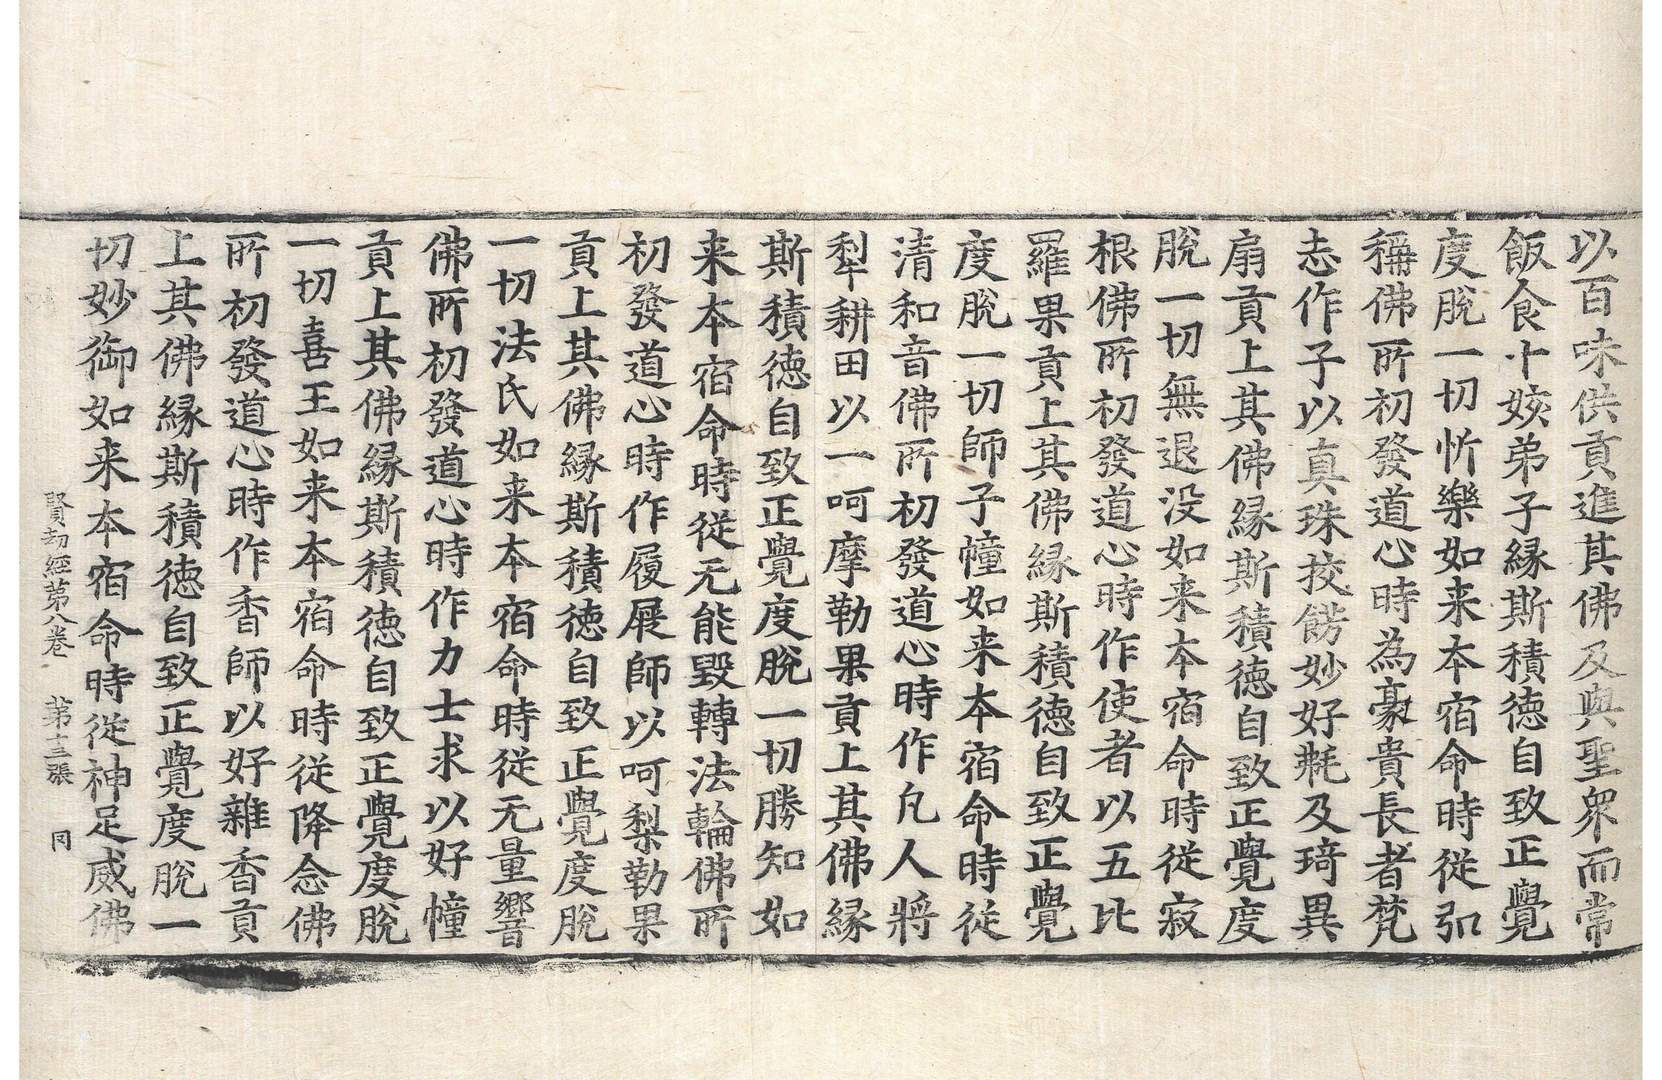 以百味供貢進其佛及與聖衆而常
飯食十姟弟子縁斯積徳自致正覺
度脫一切忻樂如来本宿命時從弘
稱佛所初發道心時為豪貴長者梵
志作子以真珠挍餝妙好㲲及琦異
扇貢上其佛縁斯積徳自致正覺度
脫一切無退没如来本宿命時從寂
根佛所初發道心時作使者以五比
羅果貢上其佛縁斯積徳自致正覺
度脫一切師子幢如来本宿命時從
清和音佛所初發道心時作凡人將
犁耕田以一呵摩勒果貢上其佛縁
斯積徳自致正覺度脫一切勝知如
来本宿命時從无能毀轉法輪佛所
初發道心時作履屐師以呵梨勒果
貢上其佛縁斯積徳自致正覺度脫
一切法氏如来本宿命時從无量響
佛所初發道心時作力士求以好幢
貢上其佛縁斯積徳自致正覺度脫
一切喜王如来本宿命時從降念佛
所初發道心時作香師以好雜香貢
上其佛縁斯積徳自致正覺度脫一
切妙御如来本宿命時從神足威佛
賢劫經第八卷 第十三張 同